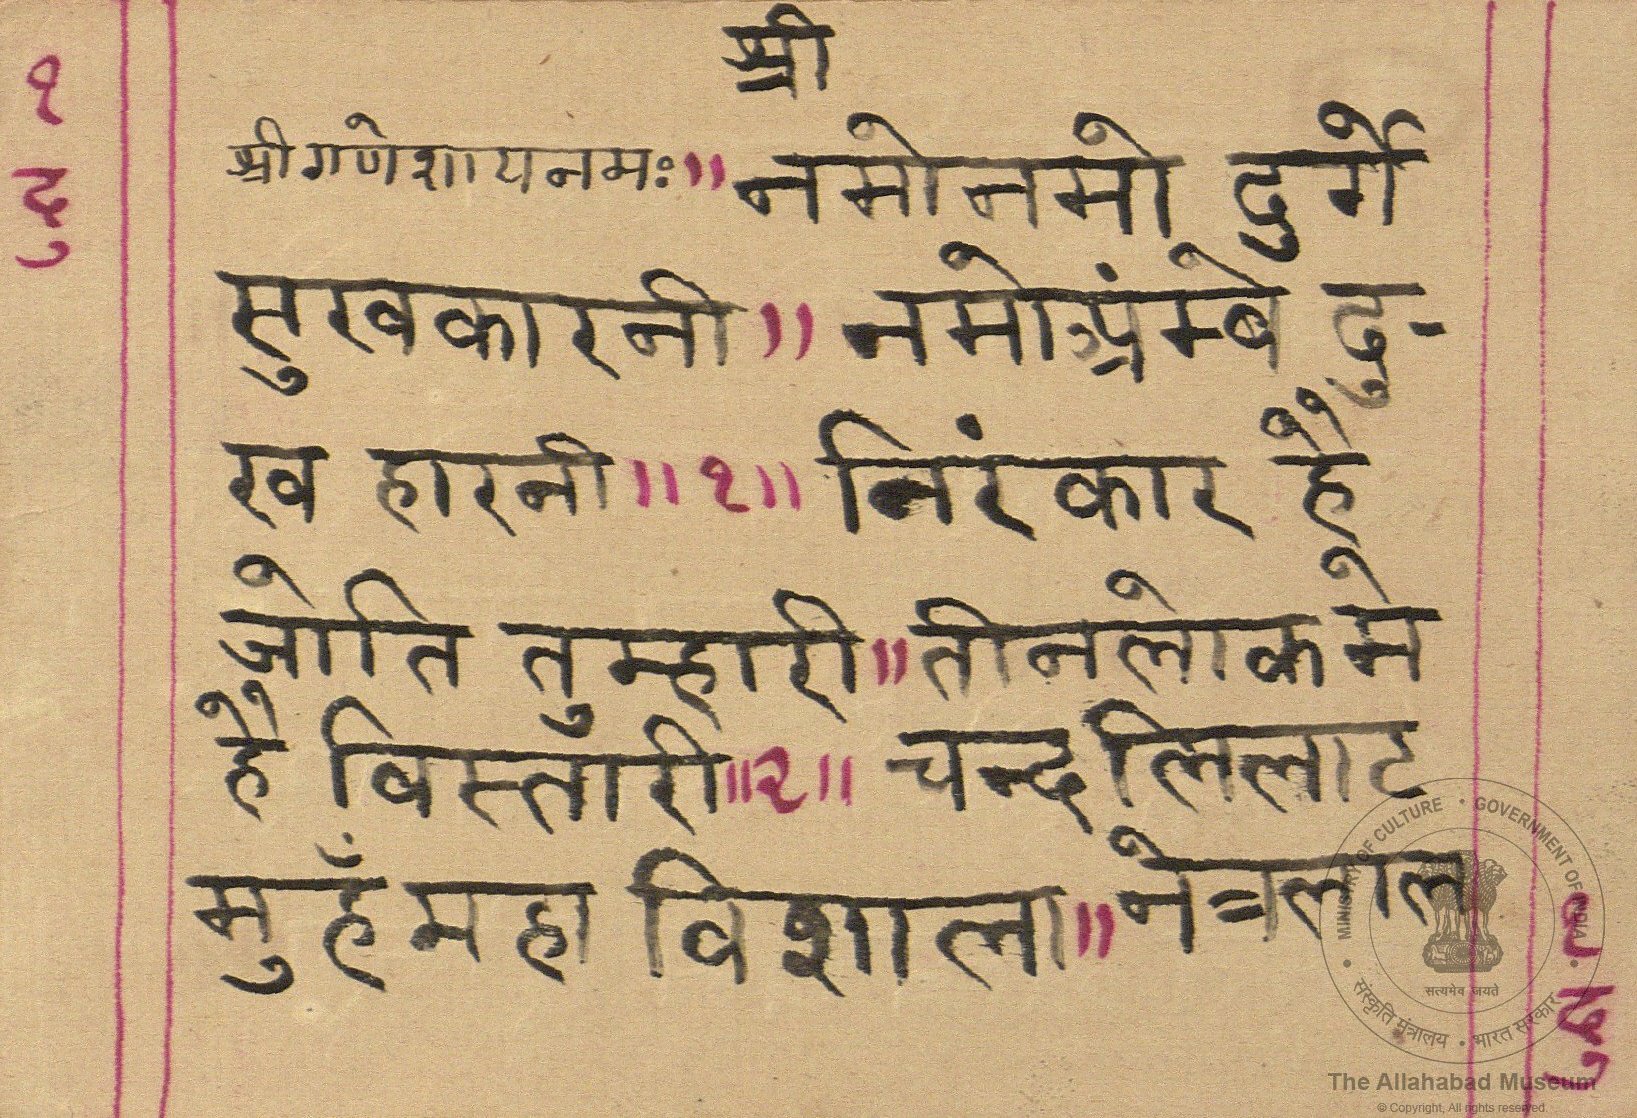 श्री
१
दु
श्रीगणेशायनमः॥ नमोनमो दुर्गे
सुखकारनी॥ नमो दु-
ख हारनी॥१॥ निरंकार है
जोति तुम्हारी॥ तीनलोकमे
है विस्तारी॥२॥ चन्द्रलिलाट
मुहँ महा विशाला॥ नेत्रलाल
१
दु
MINISTRY OF CULTURE • GOVERNMENT OF INDIA
सत्यमेव जयते
संस्कृति मंत्रालय • भारत सरकार
The Allahabad Museum
© Copyright, All rights reserved.